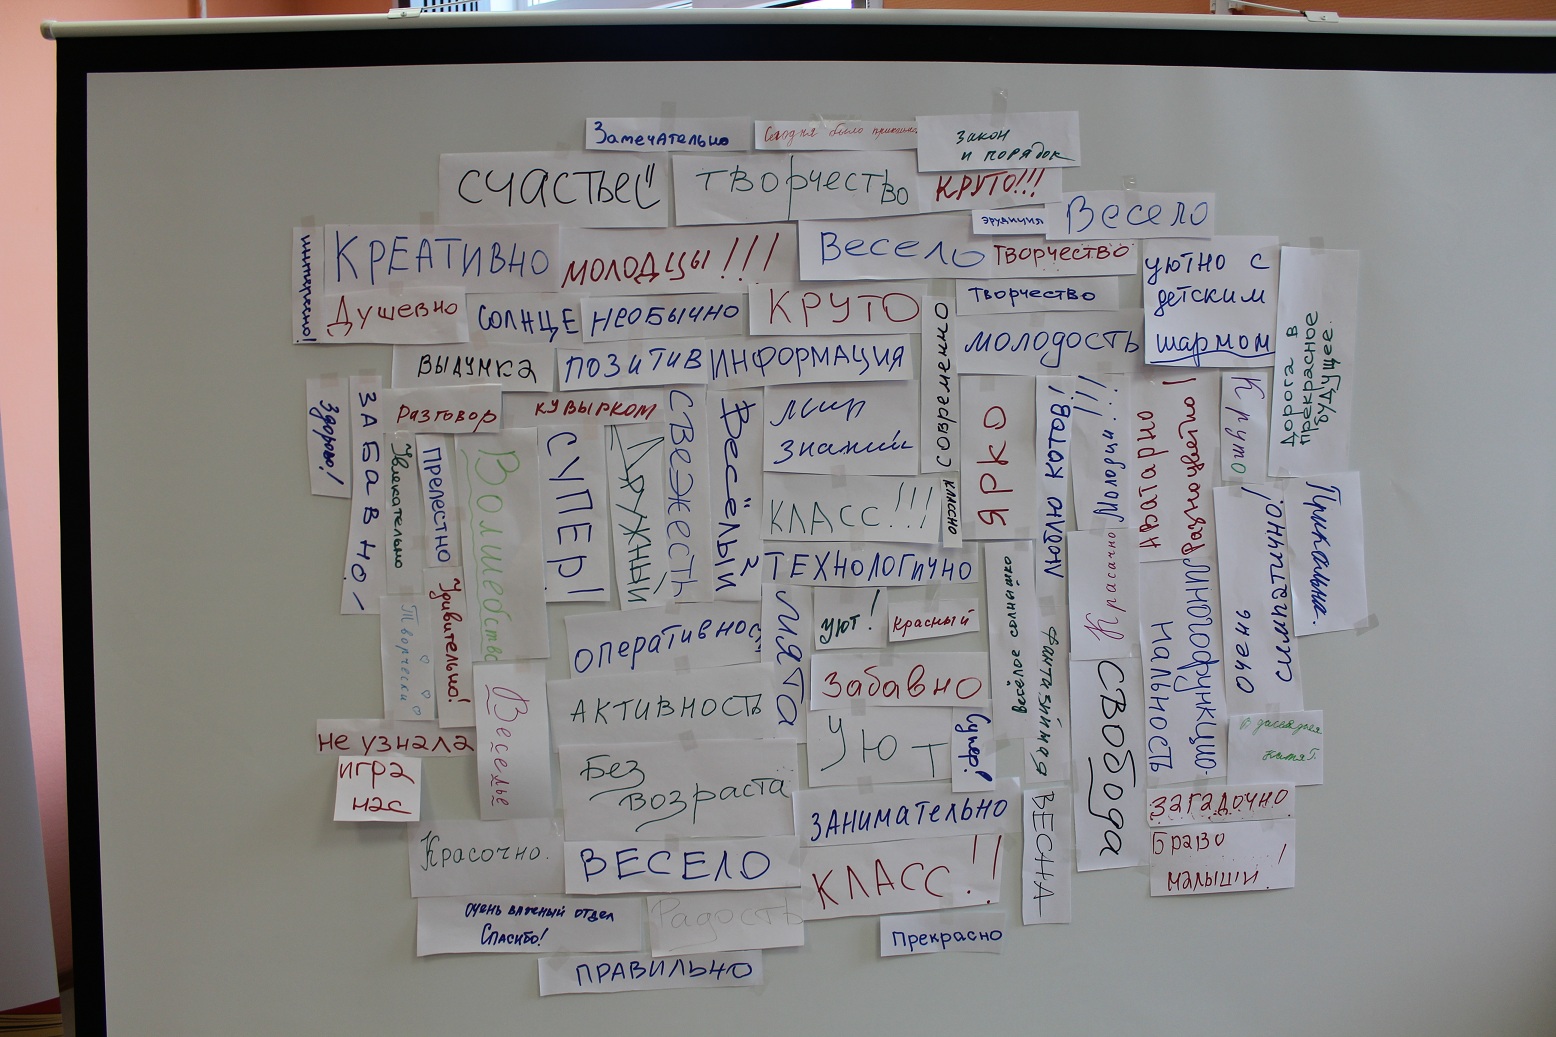 Замечательно
Сегодня было
Закон
и порядок
СЧАСТЬЕ
творчество
КРУТО!!!
эрудиция
Весело
КРЕАТИВНО
молодцы!!!
Весело
Творчество
уютно с
детским
шармом
Дорога в
прекрасное
будущее.
Душевно
СОЛНЦЕ
НЕОБЫЧНО
КРУТО
Творчество
современно
молодость
ВЫДУМКА
ПОЗИТИВ
ИНФОРМАЦИЯ
Здорово!
ЗАБАВНО!
разговор
кувырком
СВЕЖЕСТЬ
Весёлый
мир
знаний
ЯРКО
Молодцы!!!
Аватарно
Разноцветно!
Круто
Увлекательно
Прелестно
Волшебство
СУПЕР!
Дружный
КЛАСС!!!
классно
очень
симпатично!
Прикольна.
ТЕХНОЛОГИЧНО
Творчески
Удивительно!
оперативнос
МЯТА
уют!
красный
весёлое солнышко
Красачно
многофункцио-
нальность
Веселье
АКТИВНОСТЬ
Забавно
Уют
Супер!
СВОбОДа
не узнала
игра
нас
Без
возраста
ЗАНИМАТЕЛЬНО
ВЕСНА
загадочно
Браво
малыши!
Красочно.
ВЕСЕЛО
КЛАСС!!
очень важный отдел
Спасибо!
Радость
Прекрасно
ПРАВИЛЬНО